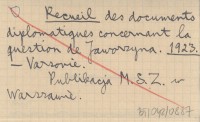 Recueil des documents
diplomatiques concernant la
question de Jaworzyna. 1923.
— Varsovie.
Publikacja M.S.Z. w
Warszawie.